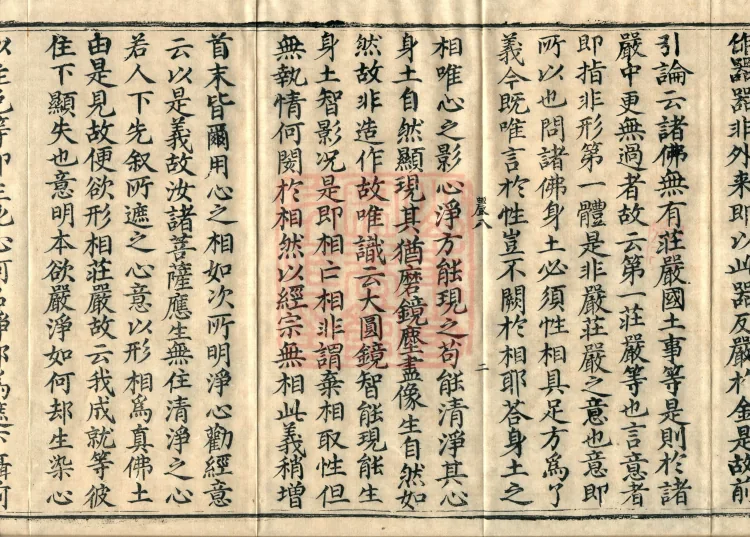 飾器器非外来即以此器反嚴於金是故前
引論云諸佛無有莊嚴國土事等是則於諸
嚴中更無過者故云第一莊嚴等也言意者
即指非形第一體是非嚴莊嚴之意也意即
所以也問諸佛身土必須性相具足方爲了
義今既唯言於性豈不闕於相耶荅身土之
二
相唯心之影心淨方能現之苟能清淨其心
身土自然顯現其猶磨鏡塵盡像生自然如
然故非造作故唯識云大圓鏡智能現能生
身土智影况是即相亡相非謂棄相取性但
無執情何闕於相然以經宗無相此義稍增
首末皆爾用心之相如次所明淨心勸經意
云以是義故汝諸菩薩應生無住清淨之心
若人下先叙所遮之心意以形相爲真佛土
由是見故便欲形相莊嚴故云我成就等彼
住下顯失也意明本欲嚴淨如何却生染心
以住色等即生